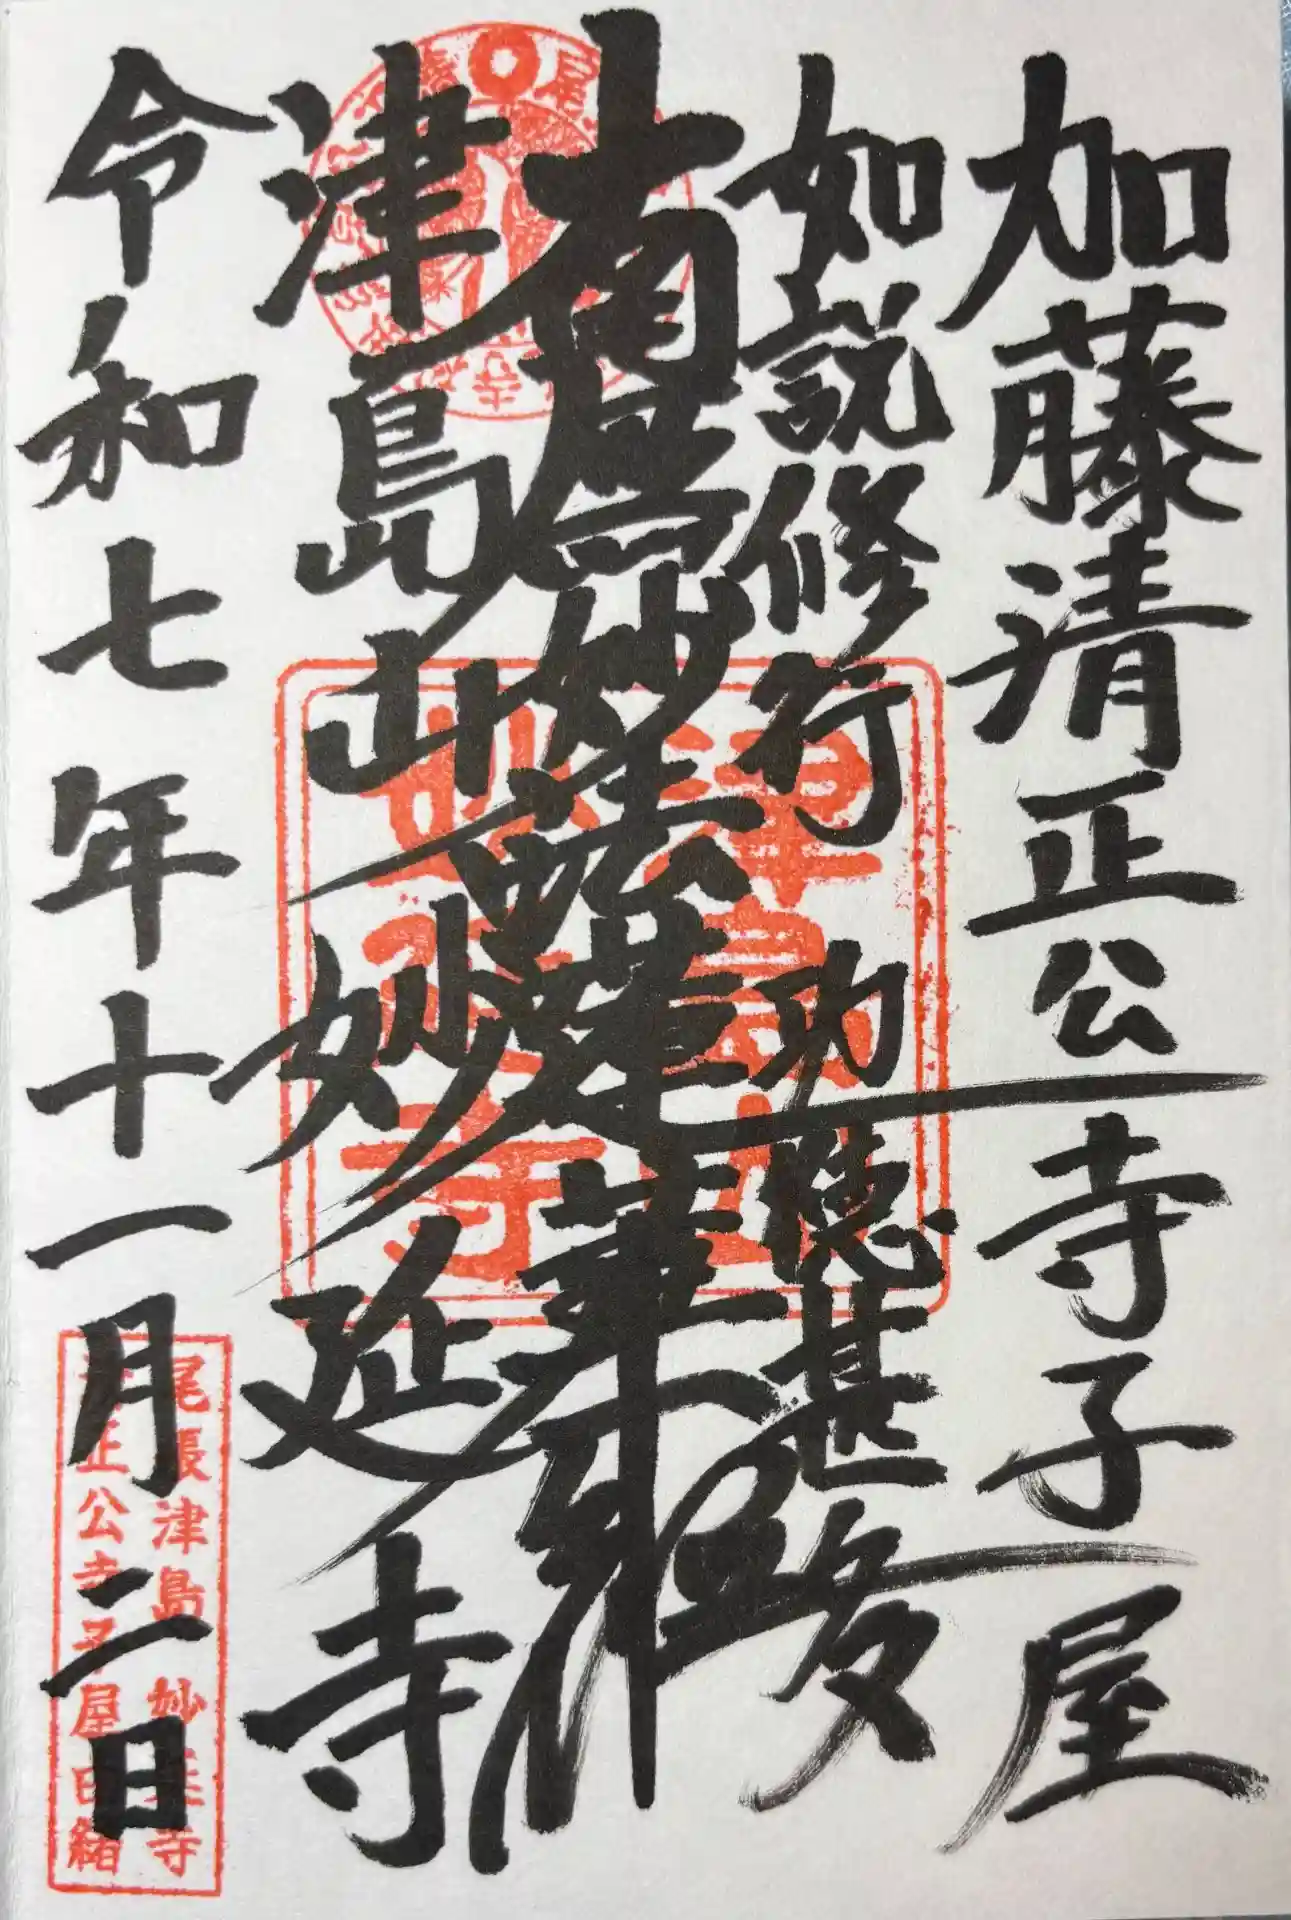 加藤清正公寺子屋
如説修行功徳甚多
南無妙法蓮華経
津島山 妙延寺
令和七年十一月二日
津島山
妙延寺
尾張津島 妙延寺
清正公寺子屋由緒